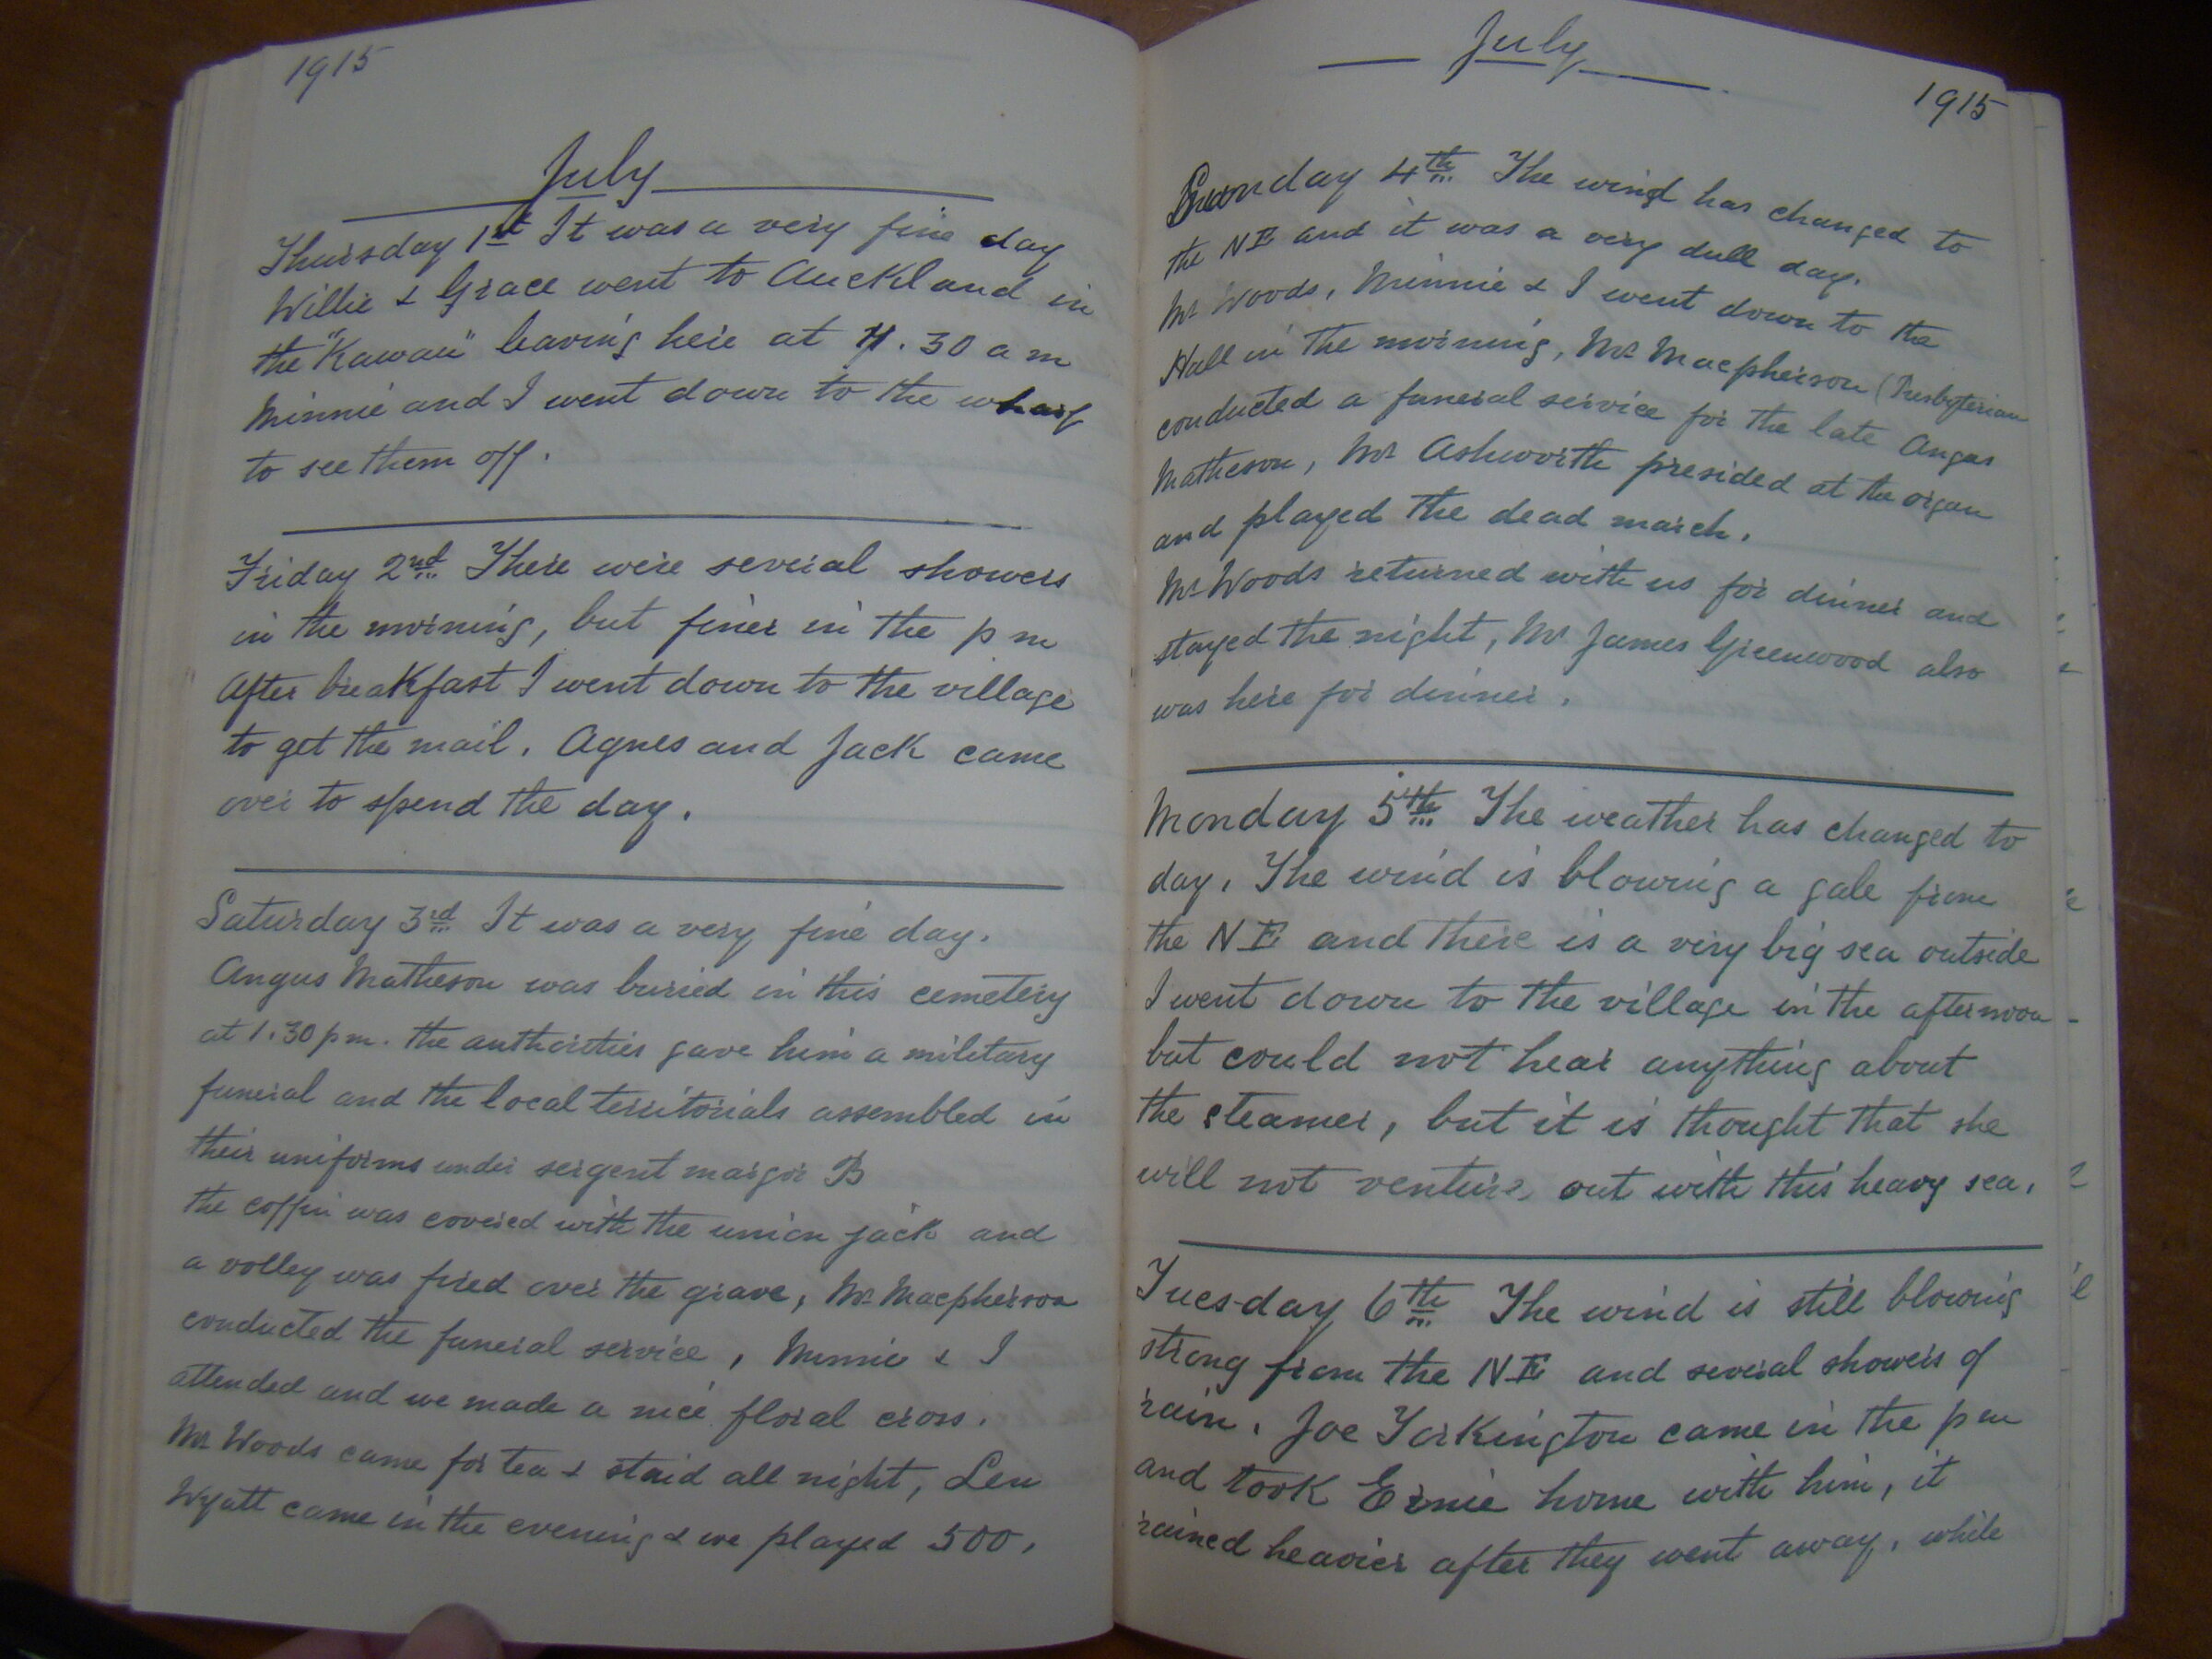 1915
July
Thursday 1st It was a very fine day
Willie & Grace went to Auckland in
the "Kawau" leaving here at 4.30 a m
Minnie and I went down to the wharf
to see them off.
Friday 2nd There were several showers
in the morning, but finer in the p m
After breakfast I went down to the village
to get the mail. Agnes and Jack came
over to spend the day.
Saturday 3rd It was a very fine day.
Angus Matheson was buried in this cemetery
at 1.30 pm. the authorities gave him a military
funeral and the local territorials assembled in
their uniforms under sergent majior B
the coffin was covered with the union jack and
a volley was fired over the grave, Mr Macpherson
conducted the funeral service, Minnie & I
attended and we made a nice floral cross.
Mr Woods came for tea & staid all night, Len
Wyatt came in the evening & we played 500.
July
1915
Sunday 4th The wind has changed to
the NE and it was a very dull day.
Mr Woods, Minnie & I went down to the
Hall in the morning, Mr Macpherson (Presbyterian
conducted a funeral service for the late Angus
Matheson, Mr Ashworth presided at the organ
and played the dead march.
Mr Woods returned with us for dinner and
stayed the night, Mr James Greenwood also
was here for dinner.
Monday 5th The weather has changed to
day. The wind is blowing a gale from
the NE and there is a very big sea outside
I went down to the village in the afternoon
but could not hear anything about
the steamer, but it is thought that she
will not venture out with this heavy sea.
Tuesday 6th The wind is still blowing
strong from the NE and several showers of
rain. Joe Torkington came in the p m
and took Ernie home with him, it
rained heavier after they went away, while